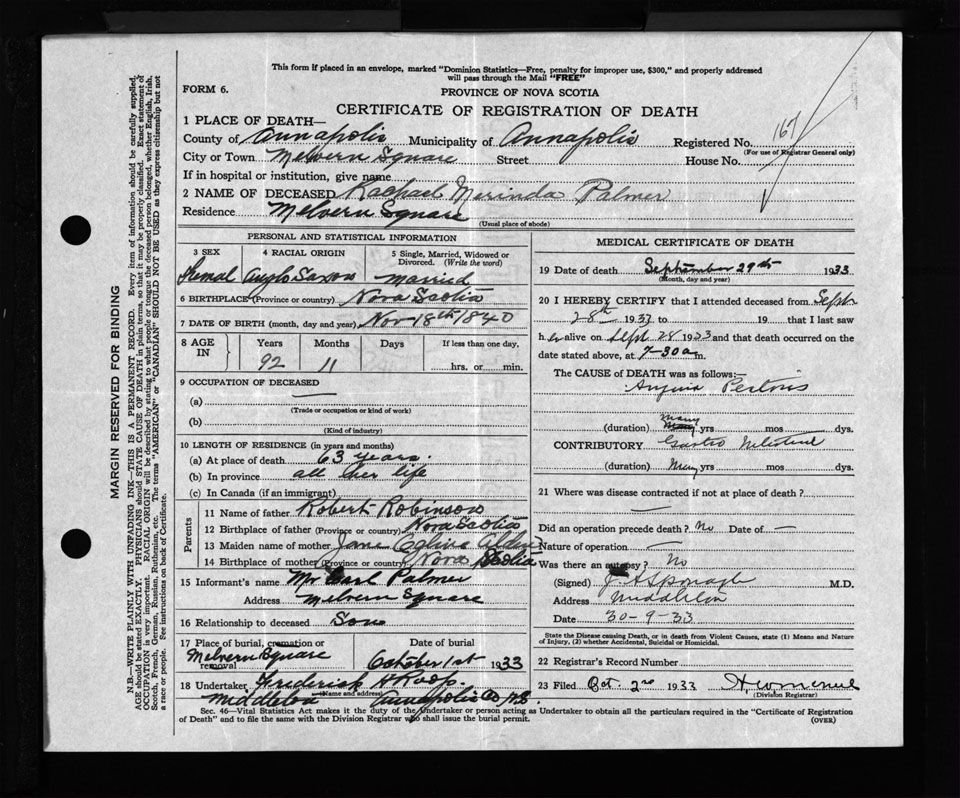 This form if placed in an envelope, marked "Dominion Statistics—Free, penalty for improper use, $300," and properly addressed
will pass through the Mail "FREE"
FORM 6.
PROVINCE OF NOVA SCOTIA
CERTIFICATE OF REGISTRATION OF DEATH
1 PLACE OF DEATH—
County of Annapolis Municipality of Annapolis Registered No. 167
(For use of Registrar General only)
City or Town Melvern Square Street House No.
If in hospital or institution, give name
2 NAME OF DECEASED Rachael Merinda Palmer
Residence Melvern Square
(Usual place of abode)
PERSONAL AND STATISTICAL INFORMATION
3 SEX 4 RACIAL ORIGIN 5 Single, Married, Widowed or Divorced. (Write the word)
Femal Anglo Saxon Married
6 BIRTHPLACE (Province or country) Nova Scotia
7 DATE OF BIRTH (month, day and year) Nov 18th 1840
8 AGE IN Years Months Days If less than one day,
92 11 hrs. or min.
9 OCCUPATION OF DECEASED
(a) —
(Trade or occupation or kind of work)
(b)
(Kind of industry)
10 LENGTH OF RESIDENCE (in years and months)
(a) At place of death 63 years.
(b) In province all her life
(c) In Canada (if an immigrant)
Parents
11 Name of father Robert Robinson
12 Birthplace of father (Province or country) Nova Scotia
13 Maiden name of mother Jane
14 Birthplace of mother (Province or country) Nova Scotia
15 Informant's name Mr Carl Palmer
Address Melvern Square
16 Relationship to deceased Son
17 Place of burial, cremation or removal Date of burial
Melvern Square October 1st 1933
18 Undertaker Frederick
(Name and address)
Middleton Annapolis Co N.S.
MEDICAL CERTIFICATE OF DEATH
19 Date of death September 29th 1933
(Month, day and year)
20 I HEREBY CERTIFY that I attended deceased from Sept
28th 1933 to 19 that I last saw
her alive on Sept 28 1933 and that death occurred on the
date stated above, at 7-30 a m.
The CAUSE of DEATH was as follows:—
Angina Pectoris
(duration) many yrs mos dys.
CONTRIBUTORY Gastro
(duration) Many yrs mos dys.
21 Where was disease contracted if not at place of death?
—
Did an operation precede death? No Date of —
Nature of operation —
Was there an autopsy? No
(Signed) M.D.
Address Middleton
Date 30-9-33
State the Disease causing Death, or in death from Violent Causes, state (1) Means and Nature
of Injury, (2) whether Accidental, Suicidal or Homicidal.
22 Registrar's Record Number
23 Filed Oct. 2nd 1933
(Division Registrar)
Sec. 46—Vital Statistics Act makes it the duty of the Undertaker or person acting as Undertaker to obtain all the particulars required in the "Certificate of Registration
of Death" and to file the same with the Division Registrar who shall issue the burial permit.
(OVER)
MARGIN RESERVED FOR BINDING
N.B.—WRITE PLAINLY WITH UNFADING INK—THIS IS A PERMANENT RECORD. Every item of information should be carefully supplied.
AGE should be stated EXACTLY. PHYSICIANS should STATE CAUSE OF DEATH in plain terms, so that it may be properly classified. Exact statement of
OCCUPATION is very important. RACIAL ORIGIN will be described by stating to what people or tongue the deceased person belonged, whether English, Irish,
Scotch, French, German, Russian, Ruthenian, etc. The terms "AMERICAN" or "CANADIAN" SHOULD NOT BE USED as they express citizenship but not
a race or people. See instructions on back of Certificate.